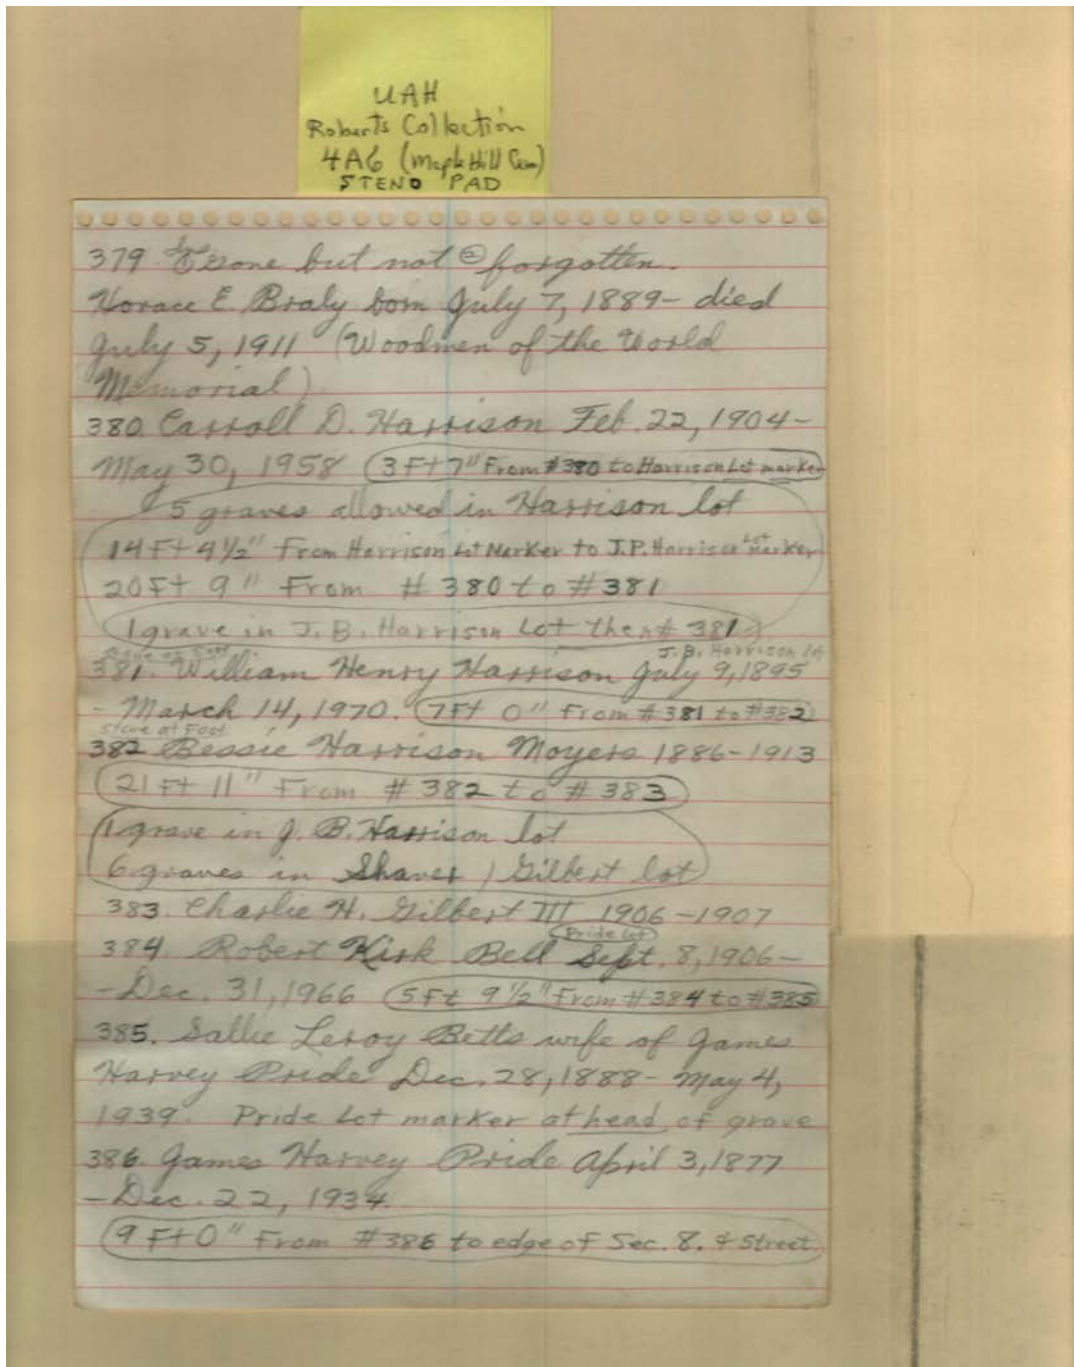 UAH
Roberts Collection
4A6 (Maple Hill Cem)
STENO PAD
379 Gone but not forgotten.
Horace E. Braly born July 7, 1889- died
July 5, 1911 (Woodmen of the World
Memorial)
380. Carroll D. Harrison Feb. 22, 1904-
May 30, 1958 (3Ft 7" From #380 to Harrison Lot marker
5 graves allowed in Harrison lot
14 Ft 4½" From Harrison Lot Marker to J.P. Harrison Lot marker
20 Ft 9" From #380 to #381
1 grave in J.B. Harrison Lot then #381
J.B. Harrison lot
381. William Henry Harrison July 9, 1895
- March 14, 1970. 7Ft 0" From #381 to #382
stone at Foot
382 Bessie Harrison Moyers 1886-1913
21 Ft 11" From #382 to #383
1 grave in J. B. Harrison lot
6 graves in Shaver / Gilbert lot
383. Charlie H. Gilbert III 1906-1907
Pride Lot
384. Robert Kirk Bell Sept. 8, 1906-
-Dec. 31, 1966 5Ft 9½" From #384 to #385
385. Sallie Leroy Betts wife of James
Harvey Pride Dec. 28, 1888- May 4,
1939. Pride Lot marker at head of grave
386. James Harvey Pride April 3, 1877
-Dec. 22, 1934.
9 Ft 0" From #386 to edge of Sec. 8. & Street